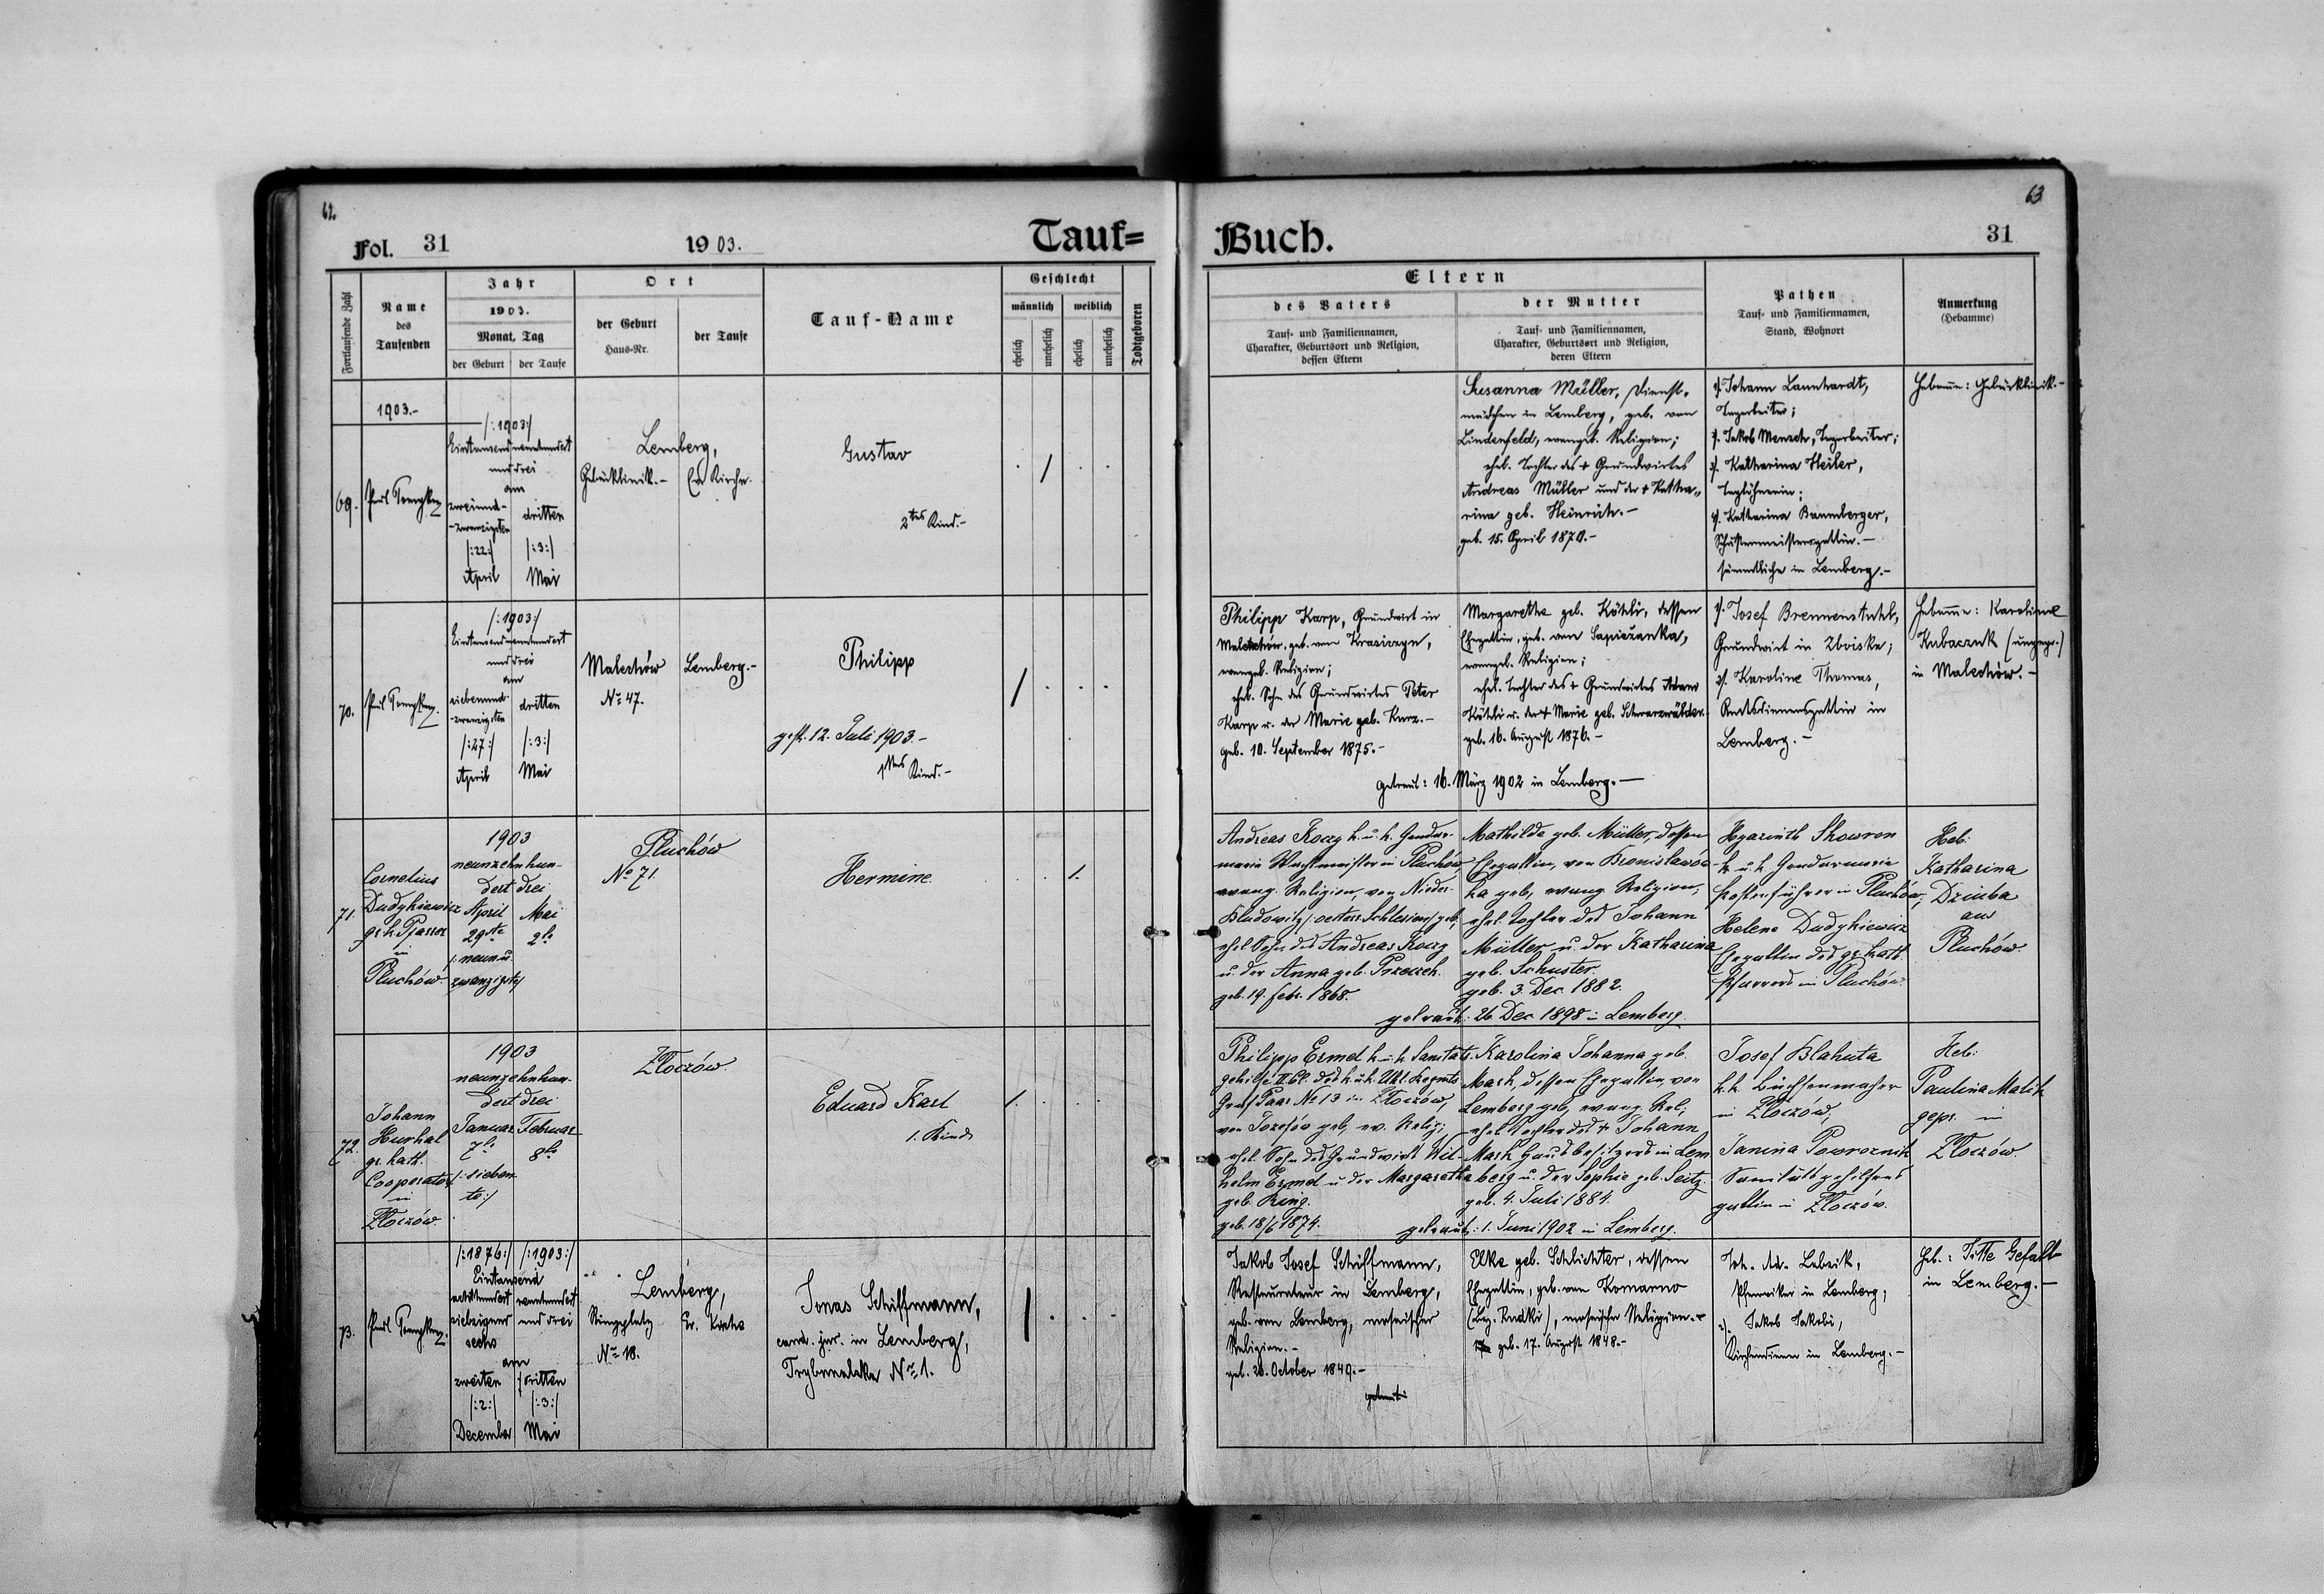 62.
Fol. 31
1903.
Tauf=
Fortlaufende Zahl
Name
des
Taufenden
Jahr
1903.
Monat, Tag
der Geburt
der Taufe
Ort
der Geburt
Haus-Nr.
der Taufe
Tauf-Name
Geschlecht
männlich
weiblich
ehelich
unehelich
ehelich
unehelich
Todtgeboren
1903.-
69.
/:1903:/
Eintausendneunhundert
und drei
am
zweiund-
-zwanzigsten
/:22:/
April
dritten
/:3:/
Mai
Lemberg,
Gebürklinik.-
Ev. Kirche.
Gustav
2tes Kind.-
70.
/:1903:/
Eintausendneunhundert
und drei
am
siebenund-
-zwanzigsten
/:27:/
April
dritten
/:3:/
Mai
Malechów
No 47.
Lemberg.-
Philipp
gest. 12. Juli 1903.-
1tes Kind.-
71.
Cornelius
Dudykiewicz
gr. k. Pfarrer
in
Pluchów.
1903
neunzehnhun-
dert drei
April
29te
/: neun u.
zwanzigste/
Mai
2te
Pluchów
No 71.
Hermine.
1.
72.
Johann
Hurhal
gr. kath.
Cooperator
in
Złoczów.
1903
neunzehnhun-
dert drei
Januar
7te
/: sieben
te:/
Februar
8te
Złoczów
Eduard Karl
1. Kind
1.
73.
/:1876:/
/:1903:/
Eintausend
achthundert
siebzigund
sechs
neunhundert
und drei
am
zweiten
/:2:/
December
dritten
/:3:/
Mai
Lemberg,
Ringplatz
No 18.
Ev. Kirche
Jonas Schiffmann,
cand. jur. in Lemberg,
Trybunalska No 1.
63
Buch.
31
Eltern
des Vaters
Tauf- und Familiennamen,
Charakter, Geburtsort und Religion,
dessen Eltern
der Mutter
Tauf- und Familiennamen,
Charakter, Geburtsort und Religion,
deren Eltern
Pathen
Tauf- und Familiennamen,
Stand, Wohnort
Anmerkung
(Hebamme)
Susanna Müller, Dienst-
mädchen in Lemberg, geb. von
Lindenfeld, evangel. Religion;
ehel. Tochter des + Grundwirtes
Andreas Müller und der + Katha-
rina geb. Heinrich.-
geb. 15. April 1870.-
1). Johann Lannhardt,
Tagarbeiter;
2). Jakob Mensch, Tagarbeiter;
3). Katharina Heiler,
Taglöhnerin;
4). Katharina Baumberger,
Schustermeistersgattin.-
sämmtliche in Lemberg.-
Hebamme: Gebürklinik.-
Philipp Karp, Grundwirt in
Malechów, geb. von Krasiczyn,
evangel. Religion;
ehel. Sohn des Grundwirtes Peter
Karp u. der Marie geb. Kurz.-
geb. 10. September 1875.-
Margaretha geb. Köhli, dessen
Ehegattin, geb. von Sapieżanka,
evangel. Religion;
ehel. Tochter des + Grundwirtes Adam
Köhli u. der + Marie geb. Schwarzwälder.
geb. 16. August 1876.-
getraut: 16. März 1902 in Lemberg.-
1). Josef Brennenstuhl,
Grundwirt in Zboiska;
2). Karoline Thomas,
Amtsdienersgattin in
Lemberg.-
Hebamme: Karoline
Kubaczuk (ungepr.)
in Malechów.-
Andreas Koczy k. u. k. Gendar-
merie Wachtmeister in Pluchów,
evang. Religion, von Nieder-
Bludowitz /:oesterr. Schlesien:/ geb.,
ehel. Sohn des Andreas Koczy
u. der Anna geb. Przeczek.
geb. 19. Febr. 1868.
Mathilde geb. Müller, dessen
Ehegattin, von Bronisławów-
ka geb., evang. Religion,
ehel. Tochter des Johann
Müller u. der Katharina
geb. Schuster.
geb. 3. Dec. 1882.
getraut: 26. Dec. 1898 in Lemberg.
Hyazinth Skowron
k. u. k. Gendarmerie
Postenführer in Pluchów;
Helena Dudykiewicz
Ehegattin des gr. kath.
Pfarrers in Pluchów.
Heb:
Katharina
Dziuba
aus
Pluchów.
Philipp Ermel k. u. k. Sanitäts-
gehilfe II. Cl. des k. u. k. Uhl. Regmts
Graf Paar No 13 in Złoczów,
von Józefów geb., ev. Relig;
ehel. Sohn des Grundwirts Wil-
helm Ermel u. der Margaretha
geb. Ring.
geb. 18/6 1874.
Karolina Johanna geb.
Mask, dessen Ehegattin, von
Lemberg geb., evang. Rel;
ehel. Tochter des + Johann
Mask Hausbesitzers in Lem
berg u. der Sophie geb. Seitz.
geb. 4. Juli 1884.
getraut: 1. Juni 1902 in Lemberg.
Josef Blahuta
k. k. Büchsenmacher
in Złoczów;
Janina Powroznik
Sanitätsgehilfens
gattin in Złoczów.
Heb:
Paulina Malik
gepr. in
Złoczów
Jakob Josef Schiffmann,
Restaurateur in Lemberg,
geb. von Lemberg, mosaischer
Religion.-
geb. 20. October 1849.-
getraut:
Elke geb. Schlichter, dessen
Ehegattin, geb. von Komarno
(Bez. Rudki), mosaischer Religion.-
geb. 17. August 1848.-
Joh. Ad. Lebzik,
Pfarrvikar in Lemberg;
2). Jakob Jakobi,
Kirchendiener in Lemberg.-
Heb.: Titte Gefallt
in Lemberg.-